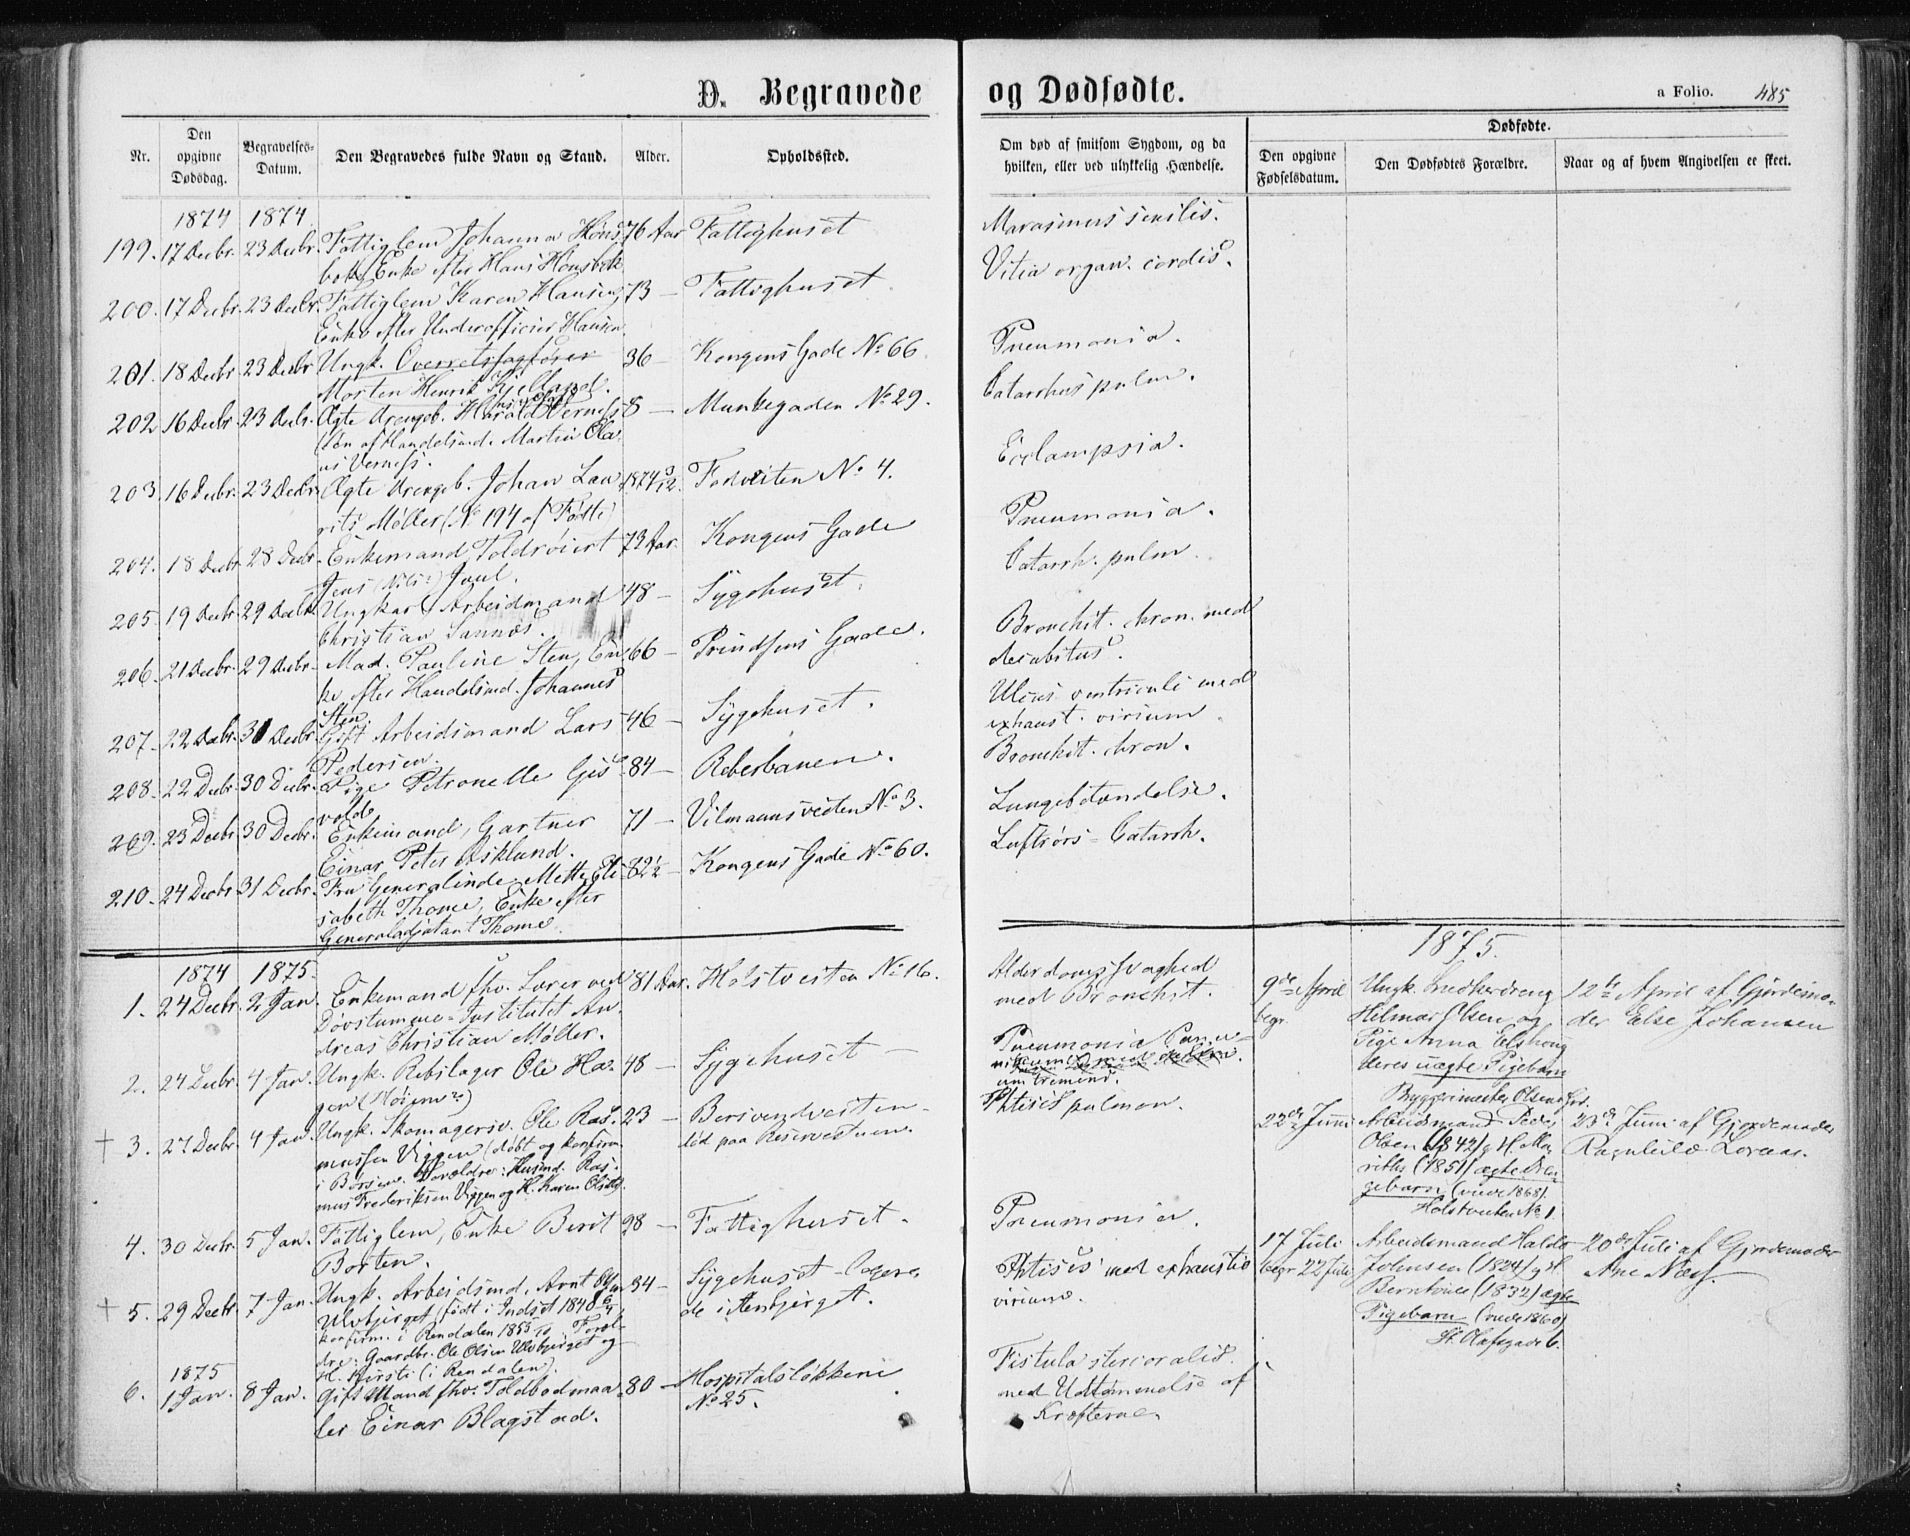 D. Begravede og Dødfødte.
a Folio. 485
Nr.
Den opgivne Dødsdag.
Begravelses-Datum.
Den Begravedes fulde Navn og Stand.
Alder.
Opholdssted.
Om død af smitsom Sygdom, og da hvilken, eller ved ulykkelig Hændelse.
Dødfødte.
Den opgivne Fødselsdatum.
Den Dødfødtes Forældre.
Naar og af hvem Angivelsen er skeet.
1874 1874.
199. 17 Decbr. 23 Decbr. Fattiglem Johanna Höns- 76 Aar Fattighuset Marasmus senilis.
bek, Enke efter Hans Hönsbek
200. 17 Decbr. 23 Decbr. Fattiglem Karen Hansen, 73 – Fattighuset. Vitia organ. cordis.
Enke efter Underofficier Hansen.
201. 18 Decbr. 23 Decbr. Ungk. Overretssagfører 36 – Kongens Gade No 66. Pneumonia.
Morten Henrik Kjelland.
202. 16 Decbr. 23 Decbr. Ægte Drengeb. Harald Verness 8 – Munkegaden No 29. Catarrhus pulm.
Søn af Handelsmd. Martin Ola-
us Verness.
203. 16 Decbr. 23 Decbr. Ægte Drengeb. Johan Lau- 1874 Forvesten No 4. Eclampsia.
rits Møller (No 194 af Fødte)
204. 18 Decbr. 28 Decbr. Enkemand Toldrorert 72 Aar. Kongens Gade Pneumonia.
Jens (Nils?) Juul.
205. 19 Decbr. 29 Decbr. Ungkarl Arbeidsmand 48 – Sygehuset. Catarrh. pulm.
Christian Sannæs.
206. 21 Decbr. 29 Decbr. Mad. Pauline Sten, En- 66 – Prindsens Gade. Bronchit. chron. med
ke efter Handelsmd. Johannes decubitus.
Sten.
207. 22 Decbr. 31 Decbr. Gift Arbeidsmand Lars 46 – Sygehuset. Ulcus ventriculi med
Pedersen. exhaust. virium.
208. 22 Decbr. 30 Decbr. Pige Petronelle Gis- 84 – Reberbanen. Bronchit. chron.
vold.
209. 23 Decbr. 30 Decbr. Enkemand, Gartner 71 – Vilmannsvesten No 3. Lungebetændelse.
Einar Peter Asklund.
210. 24 Decbr. 31 Decbr. Fru Generalinde Mette Eli- 82½ – Kongens Gade No 60. Luftrørs-Catarrh.
sabeth Thome, Enke efter
Generaladjutant Thome.
1874 1875.
1. 24 Decbr. 2 Jan. Enkemand fhv. Lærer ved 81 Aar. Holstvesten No 16. Alderdomssvaghed
Døvstumme-Institutet An- med Bronchit.
dreas Christian Møller.
2. 24 Decbr. 4 Jan. Ungk. Rebslager Ole Ha- 48 – Sygehuset – Pneumonia
gen (Høiem?) um tremens.
+ 3. 27 Decbr. 4 Jan. Ungk. Skomagersv. Ole Ras- 23 – Bersvendvesten – Phtisis pulmon.
mussen Viggen (døbt og konfirm. død paa Reservestuen.
i Børsen. Forældre: Husmd. Ras-
mus Frederiksen Viggen og H. Karen Olsdtr.
4. 30 Decbr. 5 Jan. Fattiglem, Enke Berit 98 – Fattighuset. Pneumonia.
Borten.
+ 5. 29 Decbr. 7 Jan. Ungk. Arbeidsmd. Arnt Olsen 34 – Sygehuset – Logeren- Phtisis med exhaustio
Ulvbjerget, født i Indset 1840 de i Stenbjerget. virium.
konfirm. i Rendalen 1855. Foræl-
dre: Gaardbr. Ole Olsen Ulvbjerget og
H. Kirsti (i Rendalen).
1875
6. 1 Jan. 8 Jan. Gift Mand fhv. Toldbodmaa- 80 – Hospitalsløkkene Fistula stercoralis
ler Einar Blagstad. No 25. med Udtømmelse af
Kræfterne.
1875.
9de April Ungk. Smededreng 12te April af Gjordemo-
begr. Hilmar Olsen og der Else Johansen
Pige Anna Elshoug
deres uægte Pigebarn
Byggmester Olsens Grd.
22de Juni Arbeidsmand Peder 23de Juni af Gjordemoder
Olsen (1842) g H. Ma- Ragnhild Lorens.
rithe (1851) ægte Dren-
gebarn (viede 1868).
Holstvesten No 1.
17 Juli Arbeidsmand Haldo 20de Juli af Gjordemoder
begr. 22 Juli Johnsen (1824) g H. Ane Næss.
Berntine (1832) ægte
Pigebarn (viede 1860)
St. Olafsgade 6.